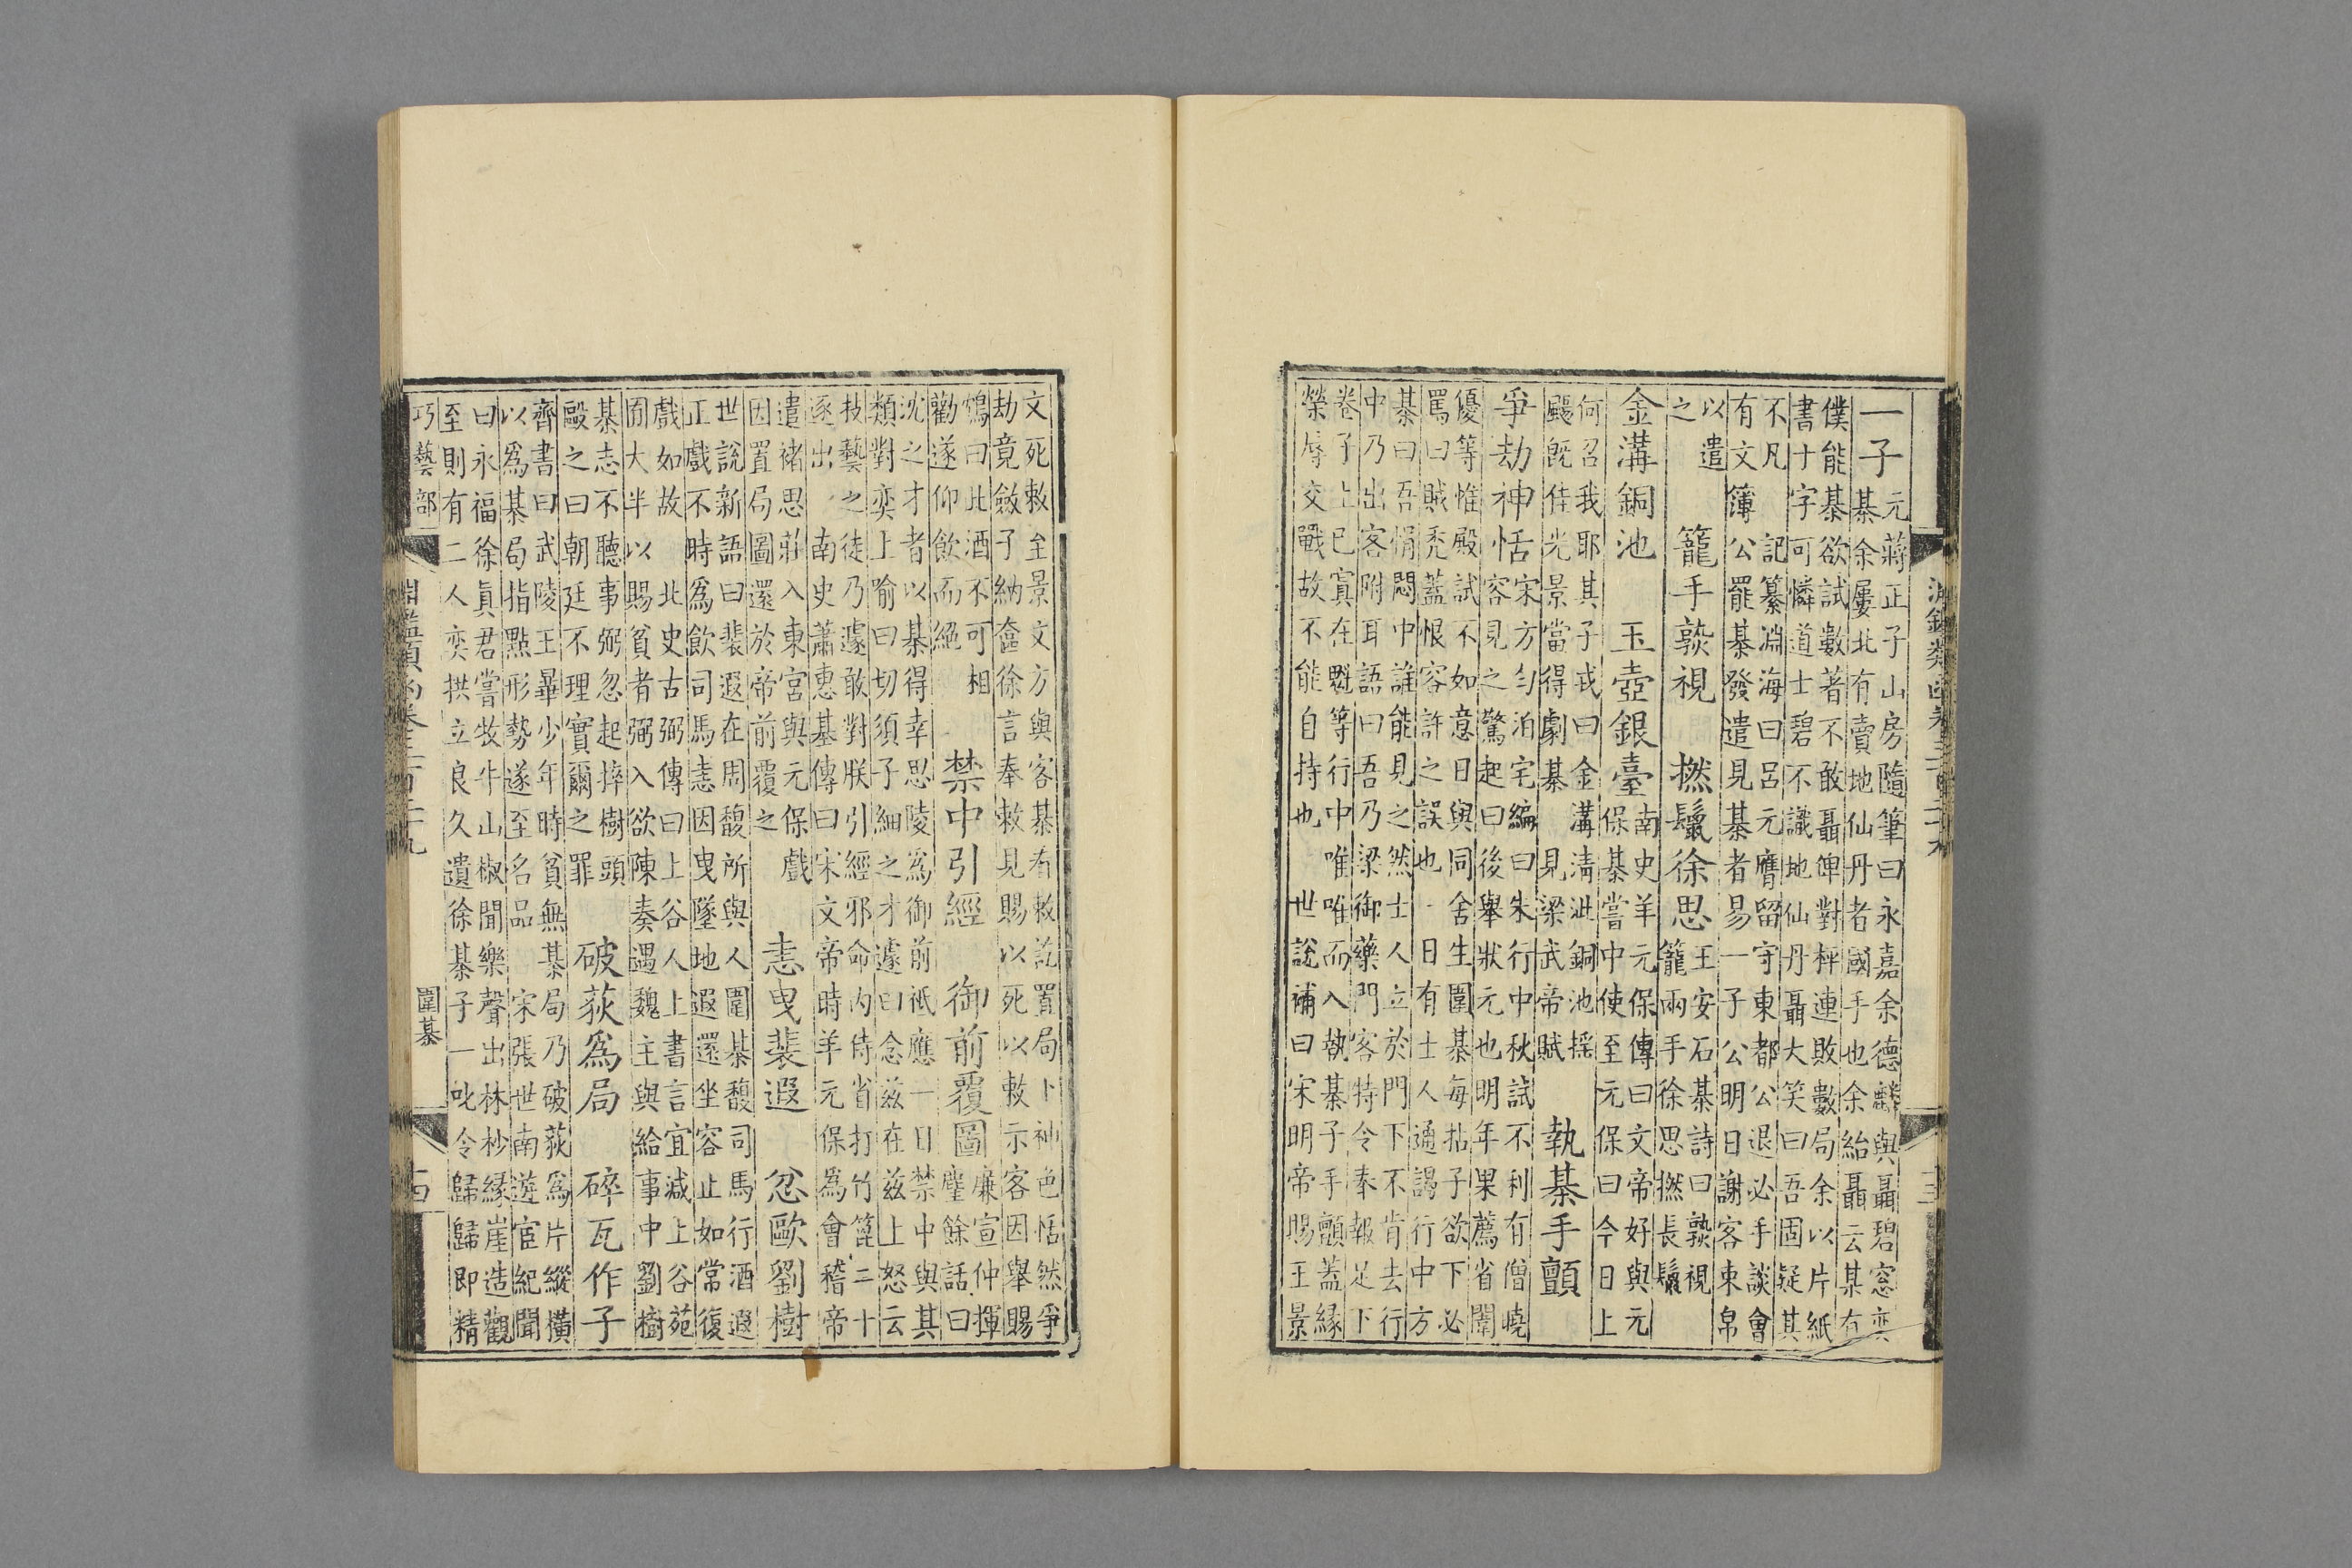 淵鑑類函卷三百二十九
一子 元蔣正子山房隨筆曰永嘉余德麟與聶碧窓奕
棊余屢北有賣地仙丹者國手也余紿聶云某有
僕能棊欲試數著不敢聶俾對枰連敗數局余以片紙
書十字可憐道士碧不識地仙丹聶大笑曰吾固疑其
不凡 記纂淵海曰呂元膺留守東都公退必手談會
有文簿公罷棊發遣見棊者易一子公明日謝客束帛
以遣
之
籠手熟視 撚鬚徐思 王安石棊詩曰熟視
籠兩手徐思撚長鬚
金溝銅池 玉壺銀臺 南史羊元保傳曰文帝好與元
保棊嘗中使至元保曰今日上
何召我耶其子戎曰金溝清泚銅池揺
颺既佳光景當得劇棊 見梁武帝賦
執棊手顫
爭劫神恬 宋方勺泊宅編曰朱行中秋試不利有僧曉
容見之驚起曰後舉狀元也明年果薦省闈
優等惟殿試不如意日與同舍生圍棊每拈子欲下必
罵曰賊禿蓋恨容許之誤也 一日有士人通謁行中方
棊曰吾悁悶中誰能見之然士人立於門下不肯去行
中乃出客附耳語曰吾乃梁御藥門客特令奉報足下
卷子上已寘在魁等行中唯唯而入執棊子手顫蓋縁
榮辱交戰故不能自持也 世說補曰宋明帝賜王景
文死敕至景文方與客棊看敕訖置局下神色恬然爭
劫竟斂子納奩徐言奉敕見賜以死以敕示客因舉賜
鴆曰此酒不可相
勸遂仰飲而絕
禁中引經 御前覆圖 廉宣仲揮
麈餘話曰
沈之才者以棊得幸思陵爲御前祗應一日禁中與其
類對奕上喻曰切須子細之才遽曰念茲在茲上怒云
技藝之徒乃遽敢對朕引經邪命內侍省打竹箆二十
逐出 南史蕭惠基傳曰宋文帝時羊元保爲會稽帝
遣褚思莊入東宮與元保戲
因置局圖還於帝前覆之
恚曳裴遐 忿歐劉樹
世說新語曰裴遐在周馥所與人圍棊馥司馬行酒遐
正戲不時爲飲司馬恚因曳墜地遐還坐容止如常復
戲如故 北史古弼傳曰上谷人上書言宜減上谷苑
囿大半以賜貧者弼入欲陳奏遇魏主與給事中劉樹
棊志不聽事弼忽起捽樹頭
毆之曰朝廷不理實爾之罪
破荻爲局 碎瓦作子
齊書曰武陵王曅少年時貧無棊局乃破荻爲片縱橫
以爲棊局指點形勢遂至名品 宋張世南遊宦紀聞
曰永福徐眞君嘗牧牛山椒聞樂聲出林杪縁崖造觀
至則有二人奕拱立良久遺徐棊子一叱令歸歸即精
巧藝部 淵鑑類函卷三百二十九 圍棊